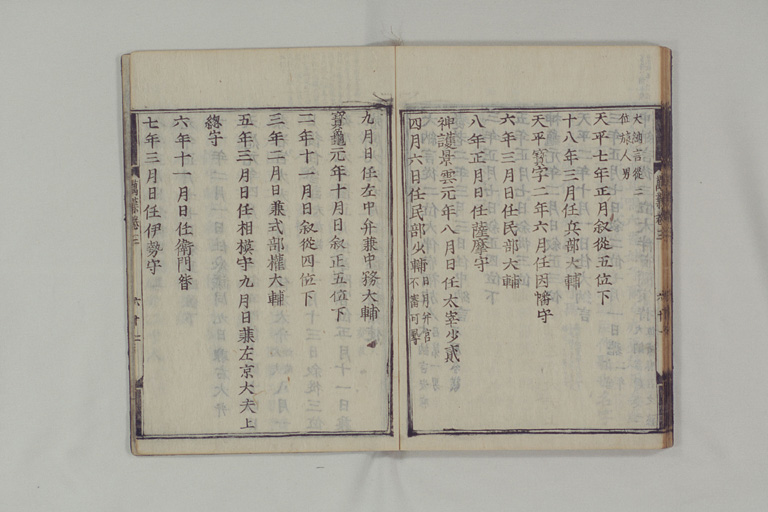 大納言從二
位旅人男
天平七年正月叙從五位下
十八年三月任兵部大輔
天平寳字二年六月任因幡守
六年三月日任民部大輔
八年正月日任薩摩守
神護景雲元年八月日任太宰少貳
四月六日任民部少輔
九月日任左中弁兼中務大輔
寳龜元年十月日叙正五位下
二年十一月日叙從四位下
三年二月日兼式部權大輔
五年三月日任相模守九月日兼左京大夫上
總守
六年十一月日任衛門督
七年三月日任伊勢守